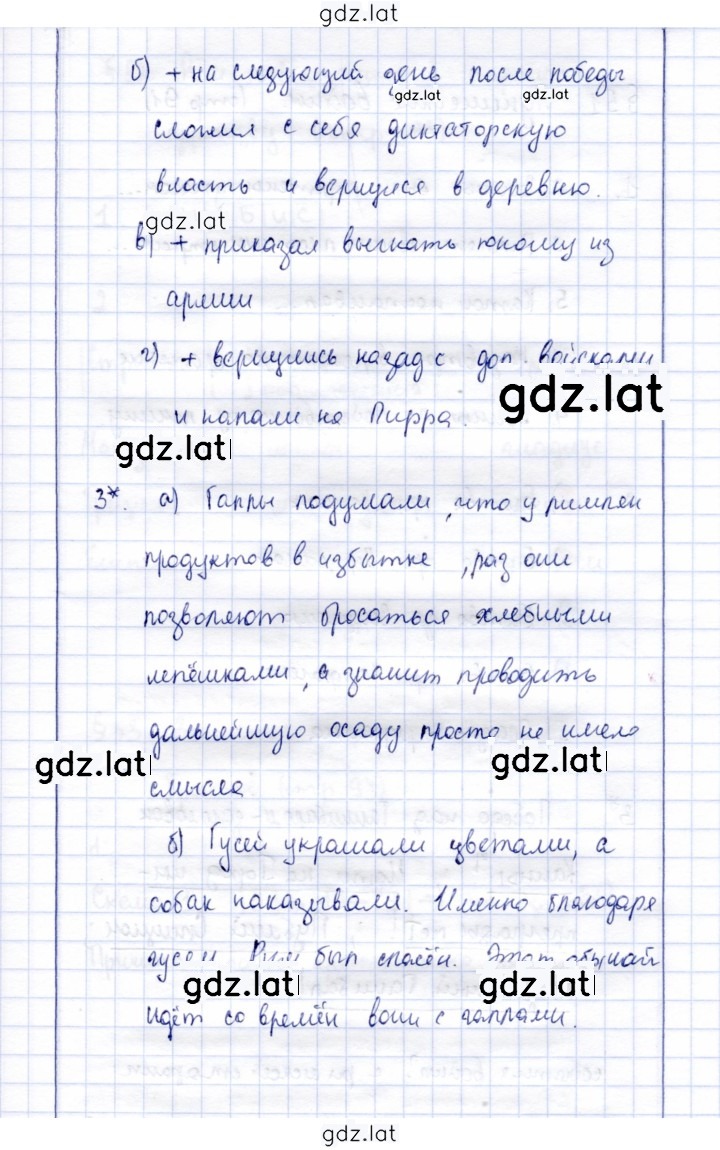 gdz.lat
б) + на следующий день после победы
gdz.lat gdz.lat
сложил с себя диктаторскую
власть и вернулся в деревню.
gdz.lat
в) + приказал выгнать юношу из
армии
г) + вернулись назад с доп. войсками
gdz.lat
и напали на Пирра.
gdz.lat
3*. а) Галлы подумали, что у римлян
продуктов в избытке, раз они
позволяют бросаться хлебными
лепёшками, а значит проводить
дальнейшую осаду просто не имело
gdz.lat gdz.lat
смысла
б) Гусей украшали цветами, а
собак наказывали. Именно благодаря
гусям Рим был спасён. Этот обычай
gdz.lat gdz.lat
идёт со времён войн с галлами.
gdz.lat